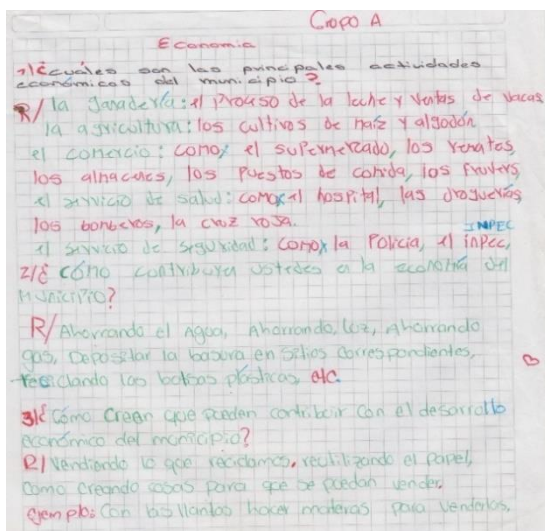 Gropo A
Economia
1/¿cuáles son las principales actividades
económicas del municipio?
R/ la ganadería: el proceso de la leche y ventas de vacas
la agricultura: los cultivos de maiz y algodón
el comercio: como, el supermercado, los remates,
los almacenes, los puestos de comida, los fruvers,
el servicio de salud: como el hospital, las droguerías,
los bomberos, la cruz roja.
INPEC
el servicio de seguridad: como la Policía, el inpec,
2/¿cómo contribuyen ustedes a la economía del
municipio?
R/ Ahorrando el Agua, Ahorrando, luz, Ahorrando
gas, Depositar la basura en sitios correspondientes,
reciclando las bolsas plásticas etc.
3/¿Cómo Creen que pueden contribuir con el desarrollo
económico del municipio?
R/ Vendiendo lo que reciclamos, reutilizando el papel,
como creando cosas para que se puedan vender.
ejemplo: Con las llantas hacer materas para venderlas.